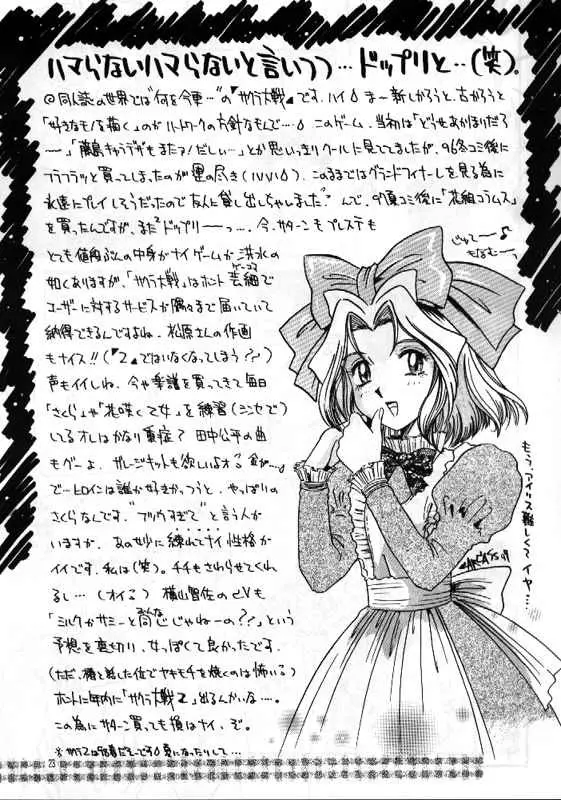 ハマらないハマらないと言いつつ…ドップリと‥(笑)。
◎同人誌の世界では“何を今更…”の『サクラ大戦』です、ハイ。ま〜新しかろうと、古かろうと
「好きなモノを描く」のがハートワークの方針なもんで…。このゲーム、当初は「どうせあかほりだろ
ー」「藤島キャラデザもまたァ!だしィ…」とか思いっきりクールに見てましたが、96冬コミ後に
フラフラッと買ってしまったのが運の尽き このままではグランドフィナーレを見る為に
永遠にプレイしそうだったので友人に貸し出しちゃいました。んで、コミ後に「花組コラムス」
を買ったんですが、またドップリ――っ…。今、サターンもプレステも
とても値段ぶんの中身がナイゲームが洪水の
如くありますが、「サクラ大戦」はホント芸細で
ユーザーに対するサービスが隅々まで届いていて
納得できるんですよね、松原さんの作画
もナイス!!(『2』ではいなくなってしまう??)
声もイイしね。今や楽譜を買ってきて毎日
「さくら」や「花咲く乙女」を練習(シンセで)
しているオレはかなり重症? 田中公平の曲
もグーよ。ガレージキットも欲しいよォ 金が…
で…ヒロインは誰が好きかっつうと、やっぱりの
さくらなんです。“フツウすぎて”と言う人が
いますが、あの妙に練れてナイ性格が
イイです、私は(笑)。チチもさわらせてくれ
るし…(オイ) 横山智佐のCVも
「ミルクやサミーと同じ感じゃねーの??」という
予想を裏切り、女っぽくて良かったです。
(ただ、椿と話した位でヤキモチを焼くのは怖いる)
ホントに年内に「サクラ大戦2」出るんかいな…。
この為にサターン買っても損はナイ、ぞ。
じゅてーむ♪
もなむーっ
もう、アイリス難しくてイヤ…。
23